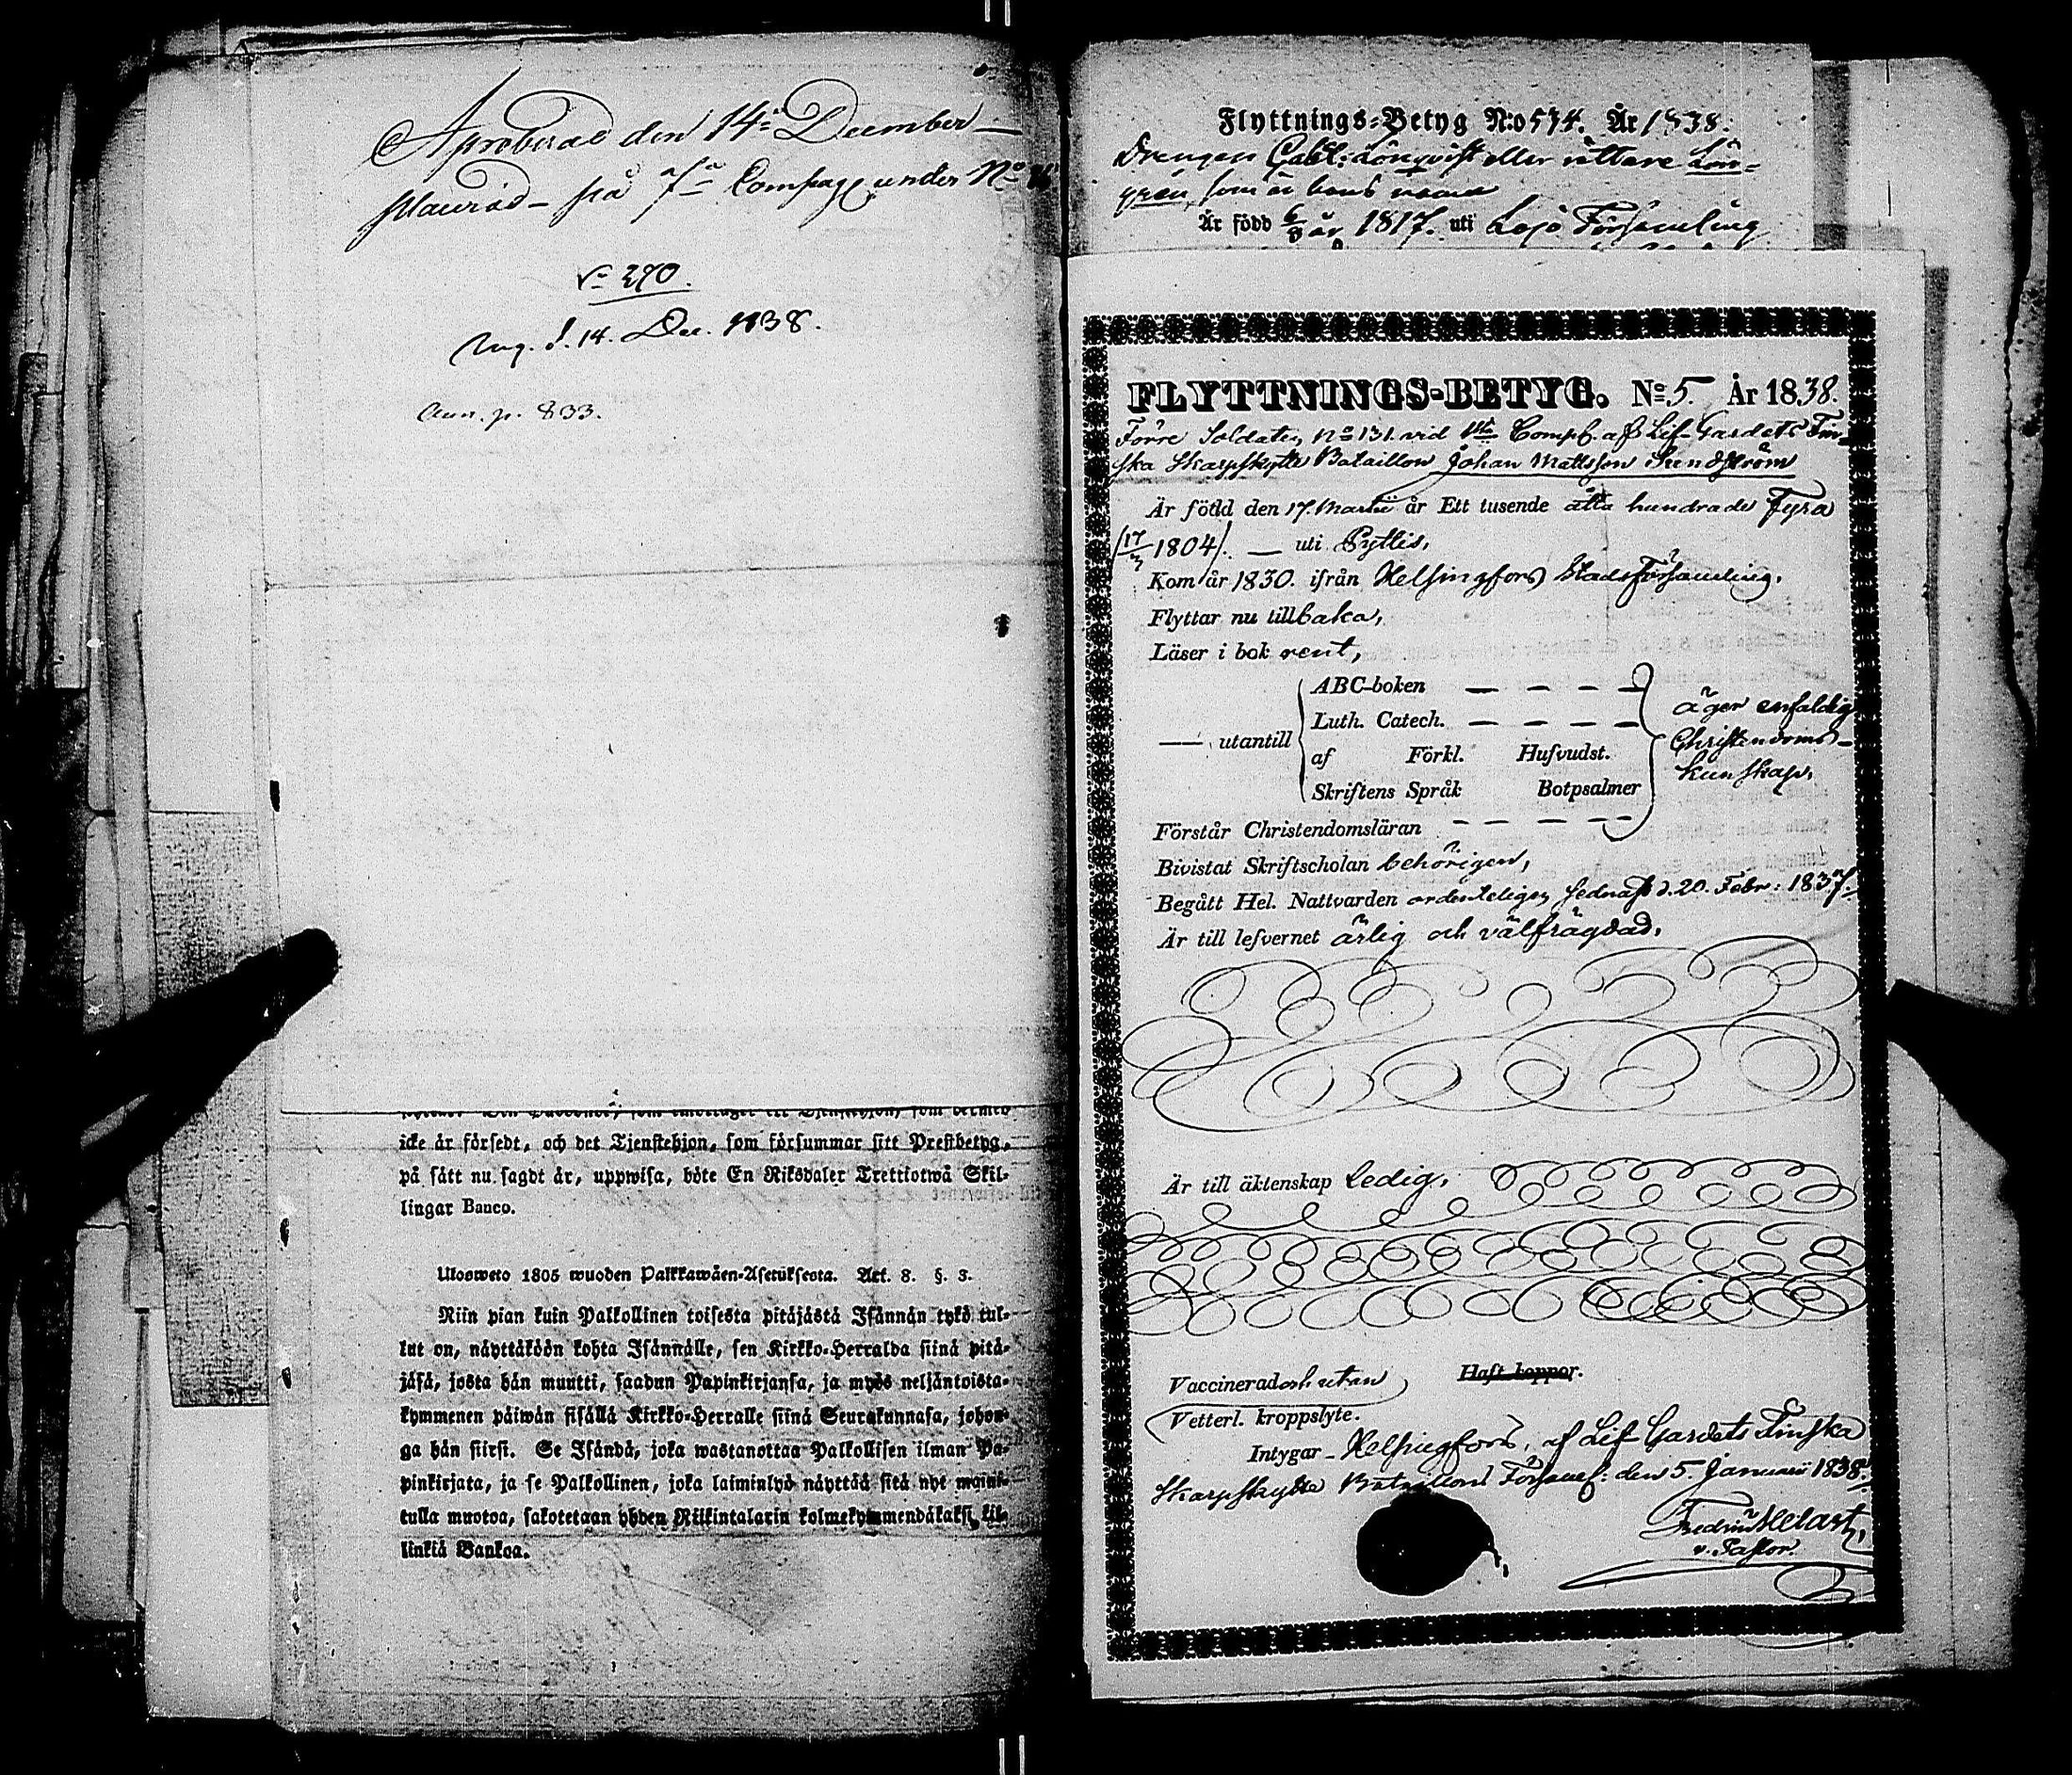 Aproberad den 14de December
på 7de Compagn under No
No 290.
Ang. d. 14. Dec. 1838.
Ann. p. 833.
icke är försedt, och det Tjenstehjon, som försummar sitt Prestbetyg,
på sätt nu sagdt är, uppwisa, böte En Riksdaler Trettiotwå Skil-
lingar Banco.
Ulosweto 1805 wuoden Palkkawäen-Asetuksesta. Art. 8. §. 3.
Niin pian kuin Palkollinen toisesta pitäjästä Isännän tykö tul-
lut on, näyttäköön kohta Isännälle, sen Kirkko-Herralda siinä pitä-
jäsä, josta hän muutti, saadun Papinkirjansa, ja myös neljäntoista-
kymmenen päiwän sisällä Kirkko-Herralle siinä Seurakunnasa, johon-
ga hän siirsi. Se Isändä, joka wastanottaa Palkollisen ilman Pa-
pinkirjata, ja se Palkollinen, joka laiminlyö näyttää sitä nyt maini-
tulla muotoa, sakotetaan yhden Riikintalarin kolmekymmendäkaksi kil-
linkiä Bankoa.
Flyttnings-Betyg N:o 574. År 1838.
Drengen Gabl: Lönqvist eller rättare Lön-
grén, som är hans namn
Är född 6/8 år 1817. uti Lojo Församling
FLYTTNINGS-BETYG. No 5. År 1838.
Förre Soldaten No 131. vid 1sta Comp. af Lif-Gardets Fin-
ska Skarpskytte Bataillon Johan Mattsson Sundström
Är född den 17. Martii år Ett tusende åtta hundrade Fyra
/17/3 1804/. — uti Pyttis,
Kom år 1830. ifrån Helsingfors Stads Församling.
Flyttar nu tillbaka,
Läser i bok rent,
—— utantill
ABC-boken — — — —
Luth. Catech. — — — —
af Förkl. Hufvudst.
Skriftens Språk Botpsalmer
äger enfaldig
Christendoms-
kunskap.
Förstår Christendomsläran — — — —
Bivistat Skriftscholan behörigen,
Begått Hel. Nattvarden ordenteligen sednast d. 20. Febr: 1837.
Är till lefvernet ärlig och välfrägdad.
Är till äktenskap Ledig.
Vaccinerad och utan Haft koppor.
Vetterl. kroppslyte.
Intygar - Helsingfors, af Lif Gardets Finska
Skarpskytte Bataillons Församl: den 5. Januarii 1838.
v. Pastor.